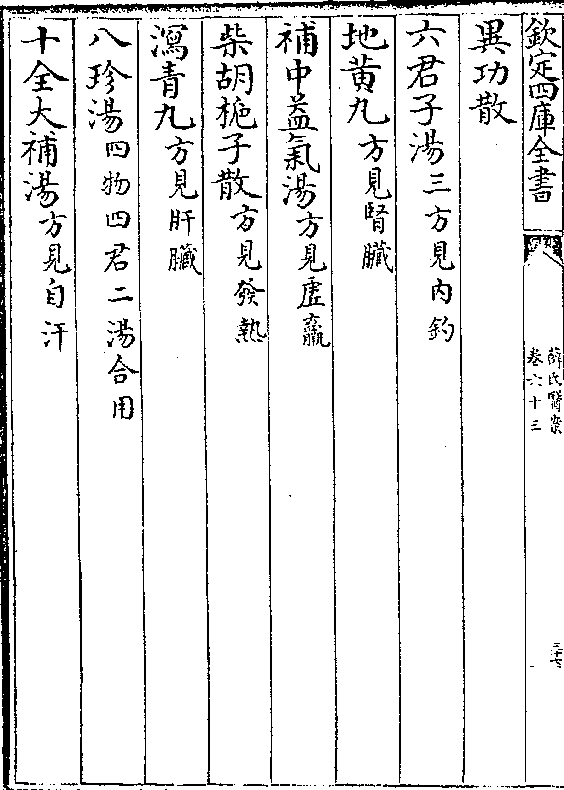 欽定四庫全書
薛氏醫案
卷六十三
三十七
異功散
六君子湯三方見內釣
地黃丸方見腎臟
補中益氣湯方見虛羸
柴胡梔子散方見發熱
瀉青丸方見肝臟
八珍湯四物四君二湯合用
十全大補湯方見自汗